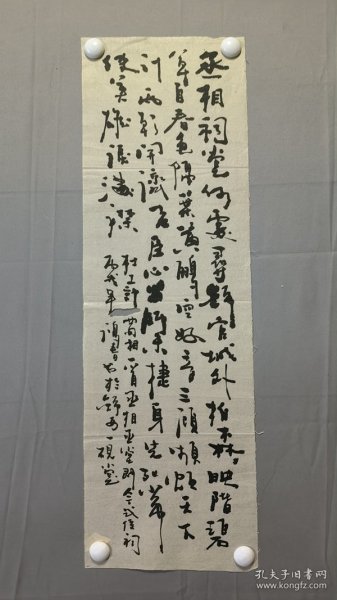 丞相祠堂何處尋錦官城外柏森森映階碧
草自春色隔葉黃鸝空好音三顧頻煩天下
計兩朝開濟老臣心出師未捷身先死長
使英雄淚滿襟 杜工部蜀相一首丞相丞堂即今武侯祠
丙戌年
孔夫子旧书网
www.kongfz.com